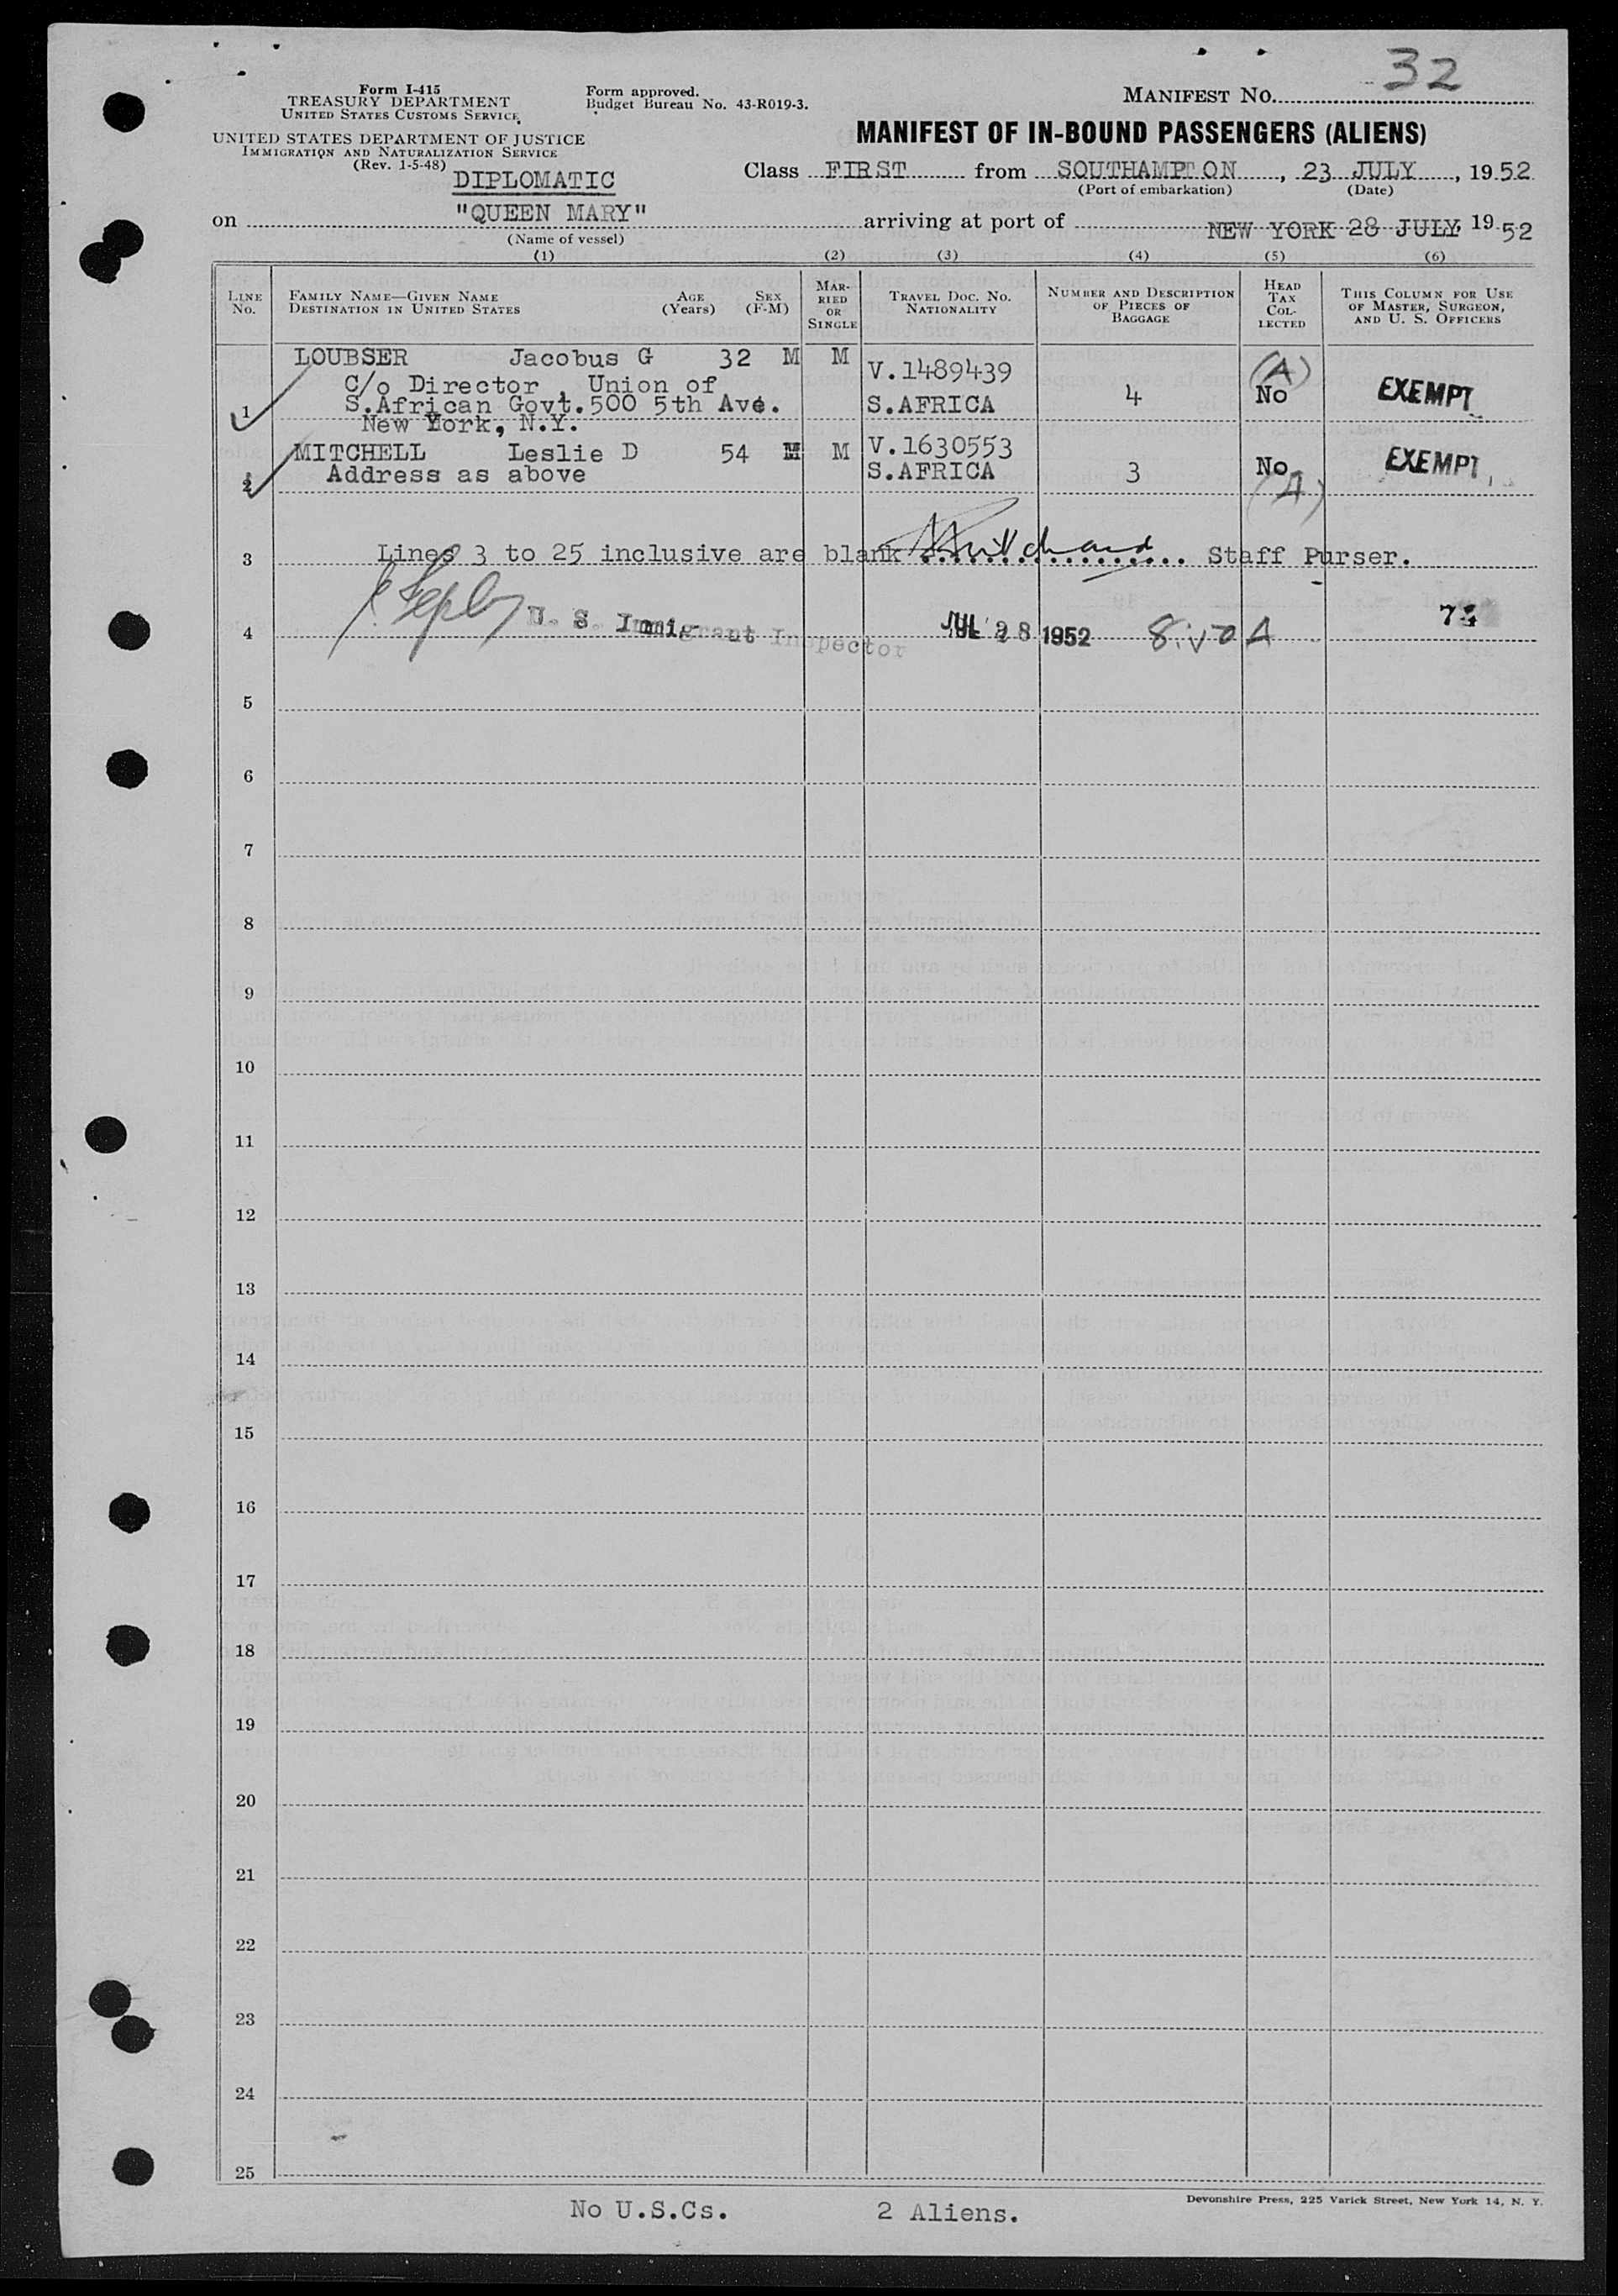 32
Form I-415
TREASURY DEPARTMENT
UNITED STATES CUSTOMS SERVICE
Form approved.
Budget Bureau No. 43-R019-3.
MANIFEST NO.
UNITED STATES DEPARTMENT OF JUSTICE
IMMIGRATION AND NATURALIZATION SERVICE
(Rev. 1-5-48)
MANIFEST OF IN-BOUND PASSENGERS (ALIENS)
DIPLOMATIC
Class FIRST from SOUTHAMPTON, 23 JULY, 1952
(Port of embarkation) (Date)
on "QUEEN MARY" arriving at port of NEW YORK 28 JULY, 1952
(Name of vessel)
(1) (2) (3) (4) (5) (6)
LINE NO.
FAMILY NAME—GIVEN NAME AGE SEX
DESTINATION IN UNITED STATES (Years) (F-M)
MARRIED OR SINGLE
TRAVEL DOC. NO. NATIONALITY
NUMBER AND DESCRIPTION OF PIECES OF BAGGAGE
HEAD TAX COLLECTED
THIS COLUMN FOR USE OF MASTER, SURGEON, AND U. S. OFFICERS
LOUBSER Jacobus G 32 M M V.1489439 (A)
C/o Director, Union of
1 S.African Govt.500 5th Ave. S.AFRICA 4 No EXEMPT
New York, N.Y.
MITCHELL Leslie D 54 M M V.1630553
2 Address as above S.AFRICA 3 No EXEMPT
(A)
3 Lines 3 to 25 inclusive are blank Staff Purser.
4 U. S. Immigrant Inspector JUL 28 1952
5
6
7
8
9
10
11
12
13
14
15
16
17
18
19
20
21
22
23
24
25
Devonshire Press, 225 Varick Street, New York 14, N. Y.
No U.S.Cs. 2 Aliens.